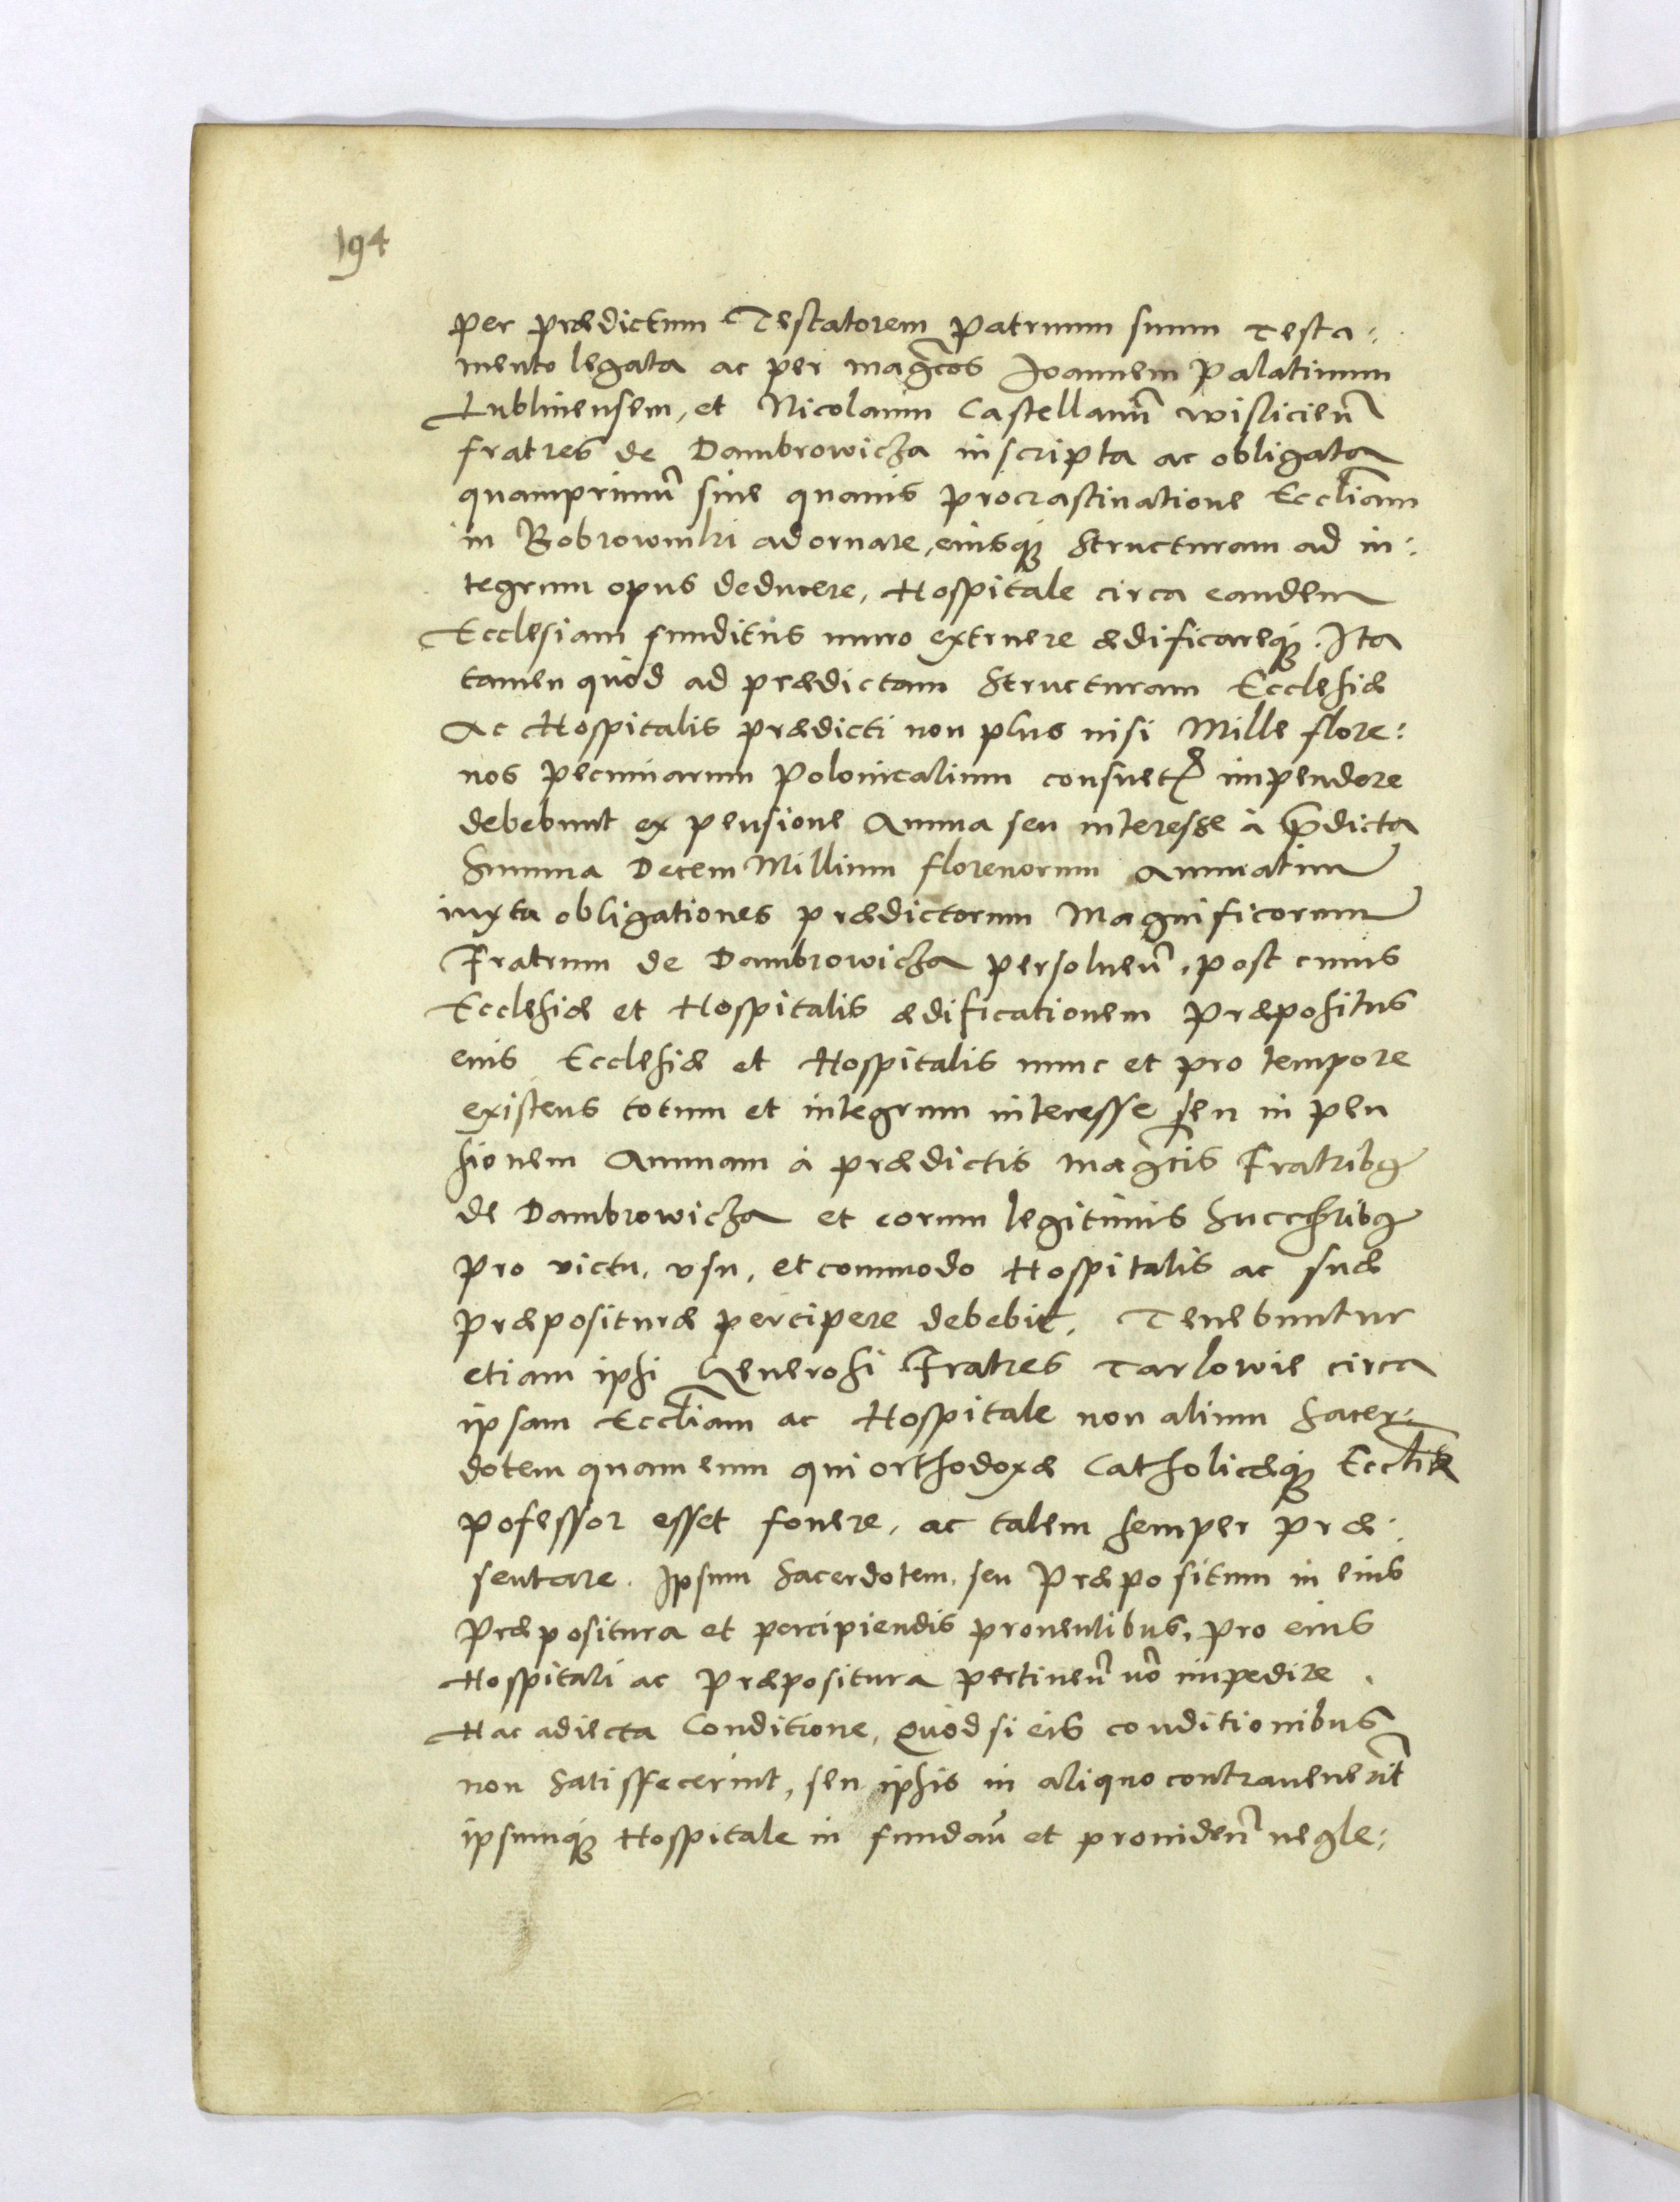 194
per prædictum Testatorem Patruum suum Testa:
mento legata ac per mag̃cos Joannem Palatinum
Lublinensem, et Nicolaum Castellanũ wislicieñ
fratres de Dambrowicza inscripta ac obligata
quamprimũ sine quauis procrastinatione Eccliam
in Bobrowniki adornare, eiusq; structuram ad in:
tegrum opus deducere, Hospitale circa eandem
Ecclesiam funditus muro extruere ædificareq;. Ita
tamen quòd ad prædictam structuram Ecclesiæ
Ac Hospitalis prædicti non plus nisi Mille flore:
nos pecuniarum Polonicalium consuet. impendere
debebunt ex pensione Annua seu interesse à p̃dicta
Summa Decem Millium florenorum annuatim
iuxta obligationes prædictorum Magnificorum
Fratrum de Dambrowicza persolueñ, post cuius
Ecclesiæ et Hospitalis ædificationem Præpositus
eius Ecclesiæ et Hospitalis nunc et pro tempore
existens totum et integrum interesse seu in pen
sionem Annuam à prædictis mag̃cis Fratribq
de Dambrowicza et eorum legitimis Succ̃ribq
pro victu, vsu, et commodo Hospitalis ac suæ
præposituræ percipere debebit, Tenebuntur
etiam ipsi Generosi Fratres Tarlowie circa
ipsam Eccliam ac Hospitale non alium Sacer:
dotem quam eum qui orthodoxæ Catholicæq; Eccliæ
pofessor esset fouere, ac talem semper præ:
sentare. Ipsum Sacerdotem, seu Præpositum in eius
Præpositura et percipiendis prouentibus, pro eius
Hospitali ac Præpositura pertineñ nõ impedire.
Hac adiecta Conditione, Quòd si eis conditionibus
non satisfecerint, seu ipsis in aliquo contrauenerĩt
ipsumq; Hospitale in fundañ et prouideñ negle: